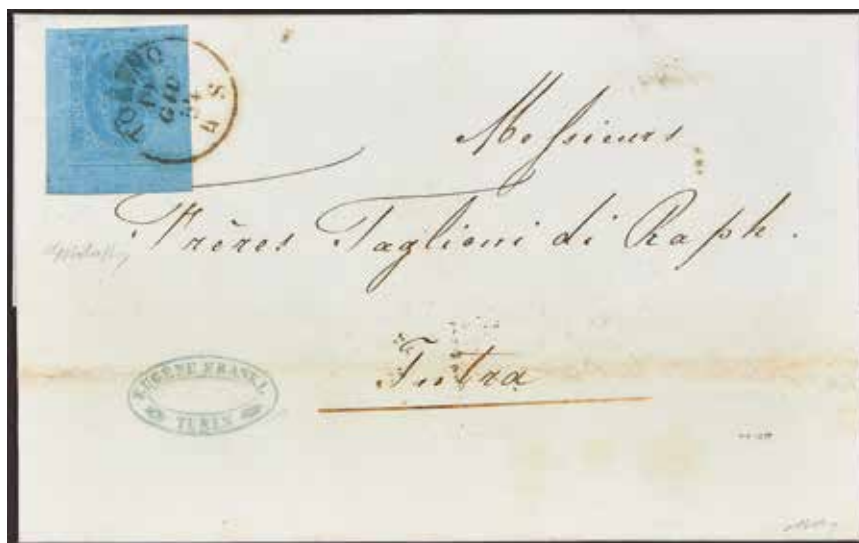 TORINO
GIU
54
4 S
Messieurs
Frères Taglioni di Raph.
Intra
EUGÈNE FRANKL
TURIN